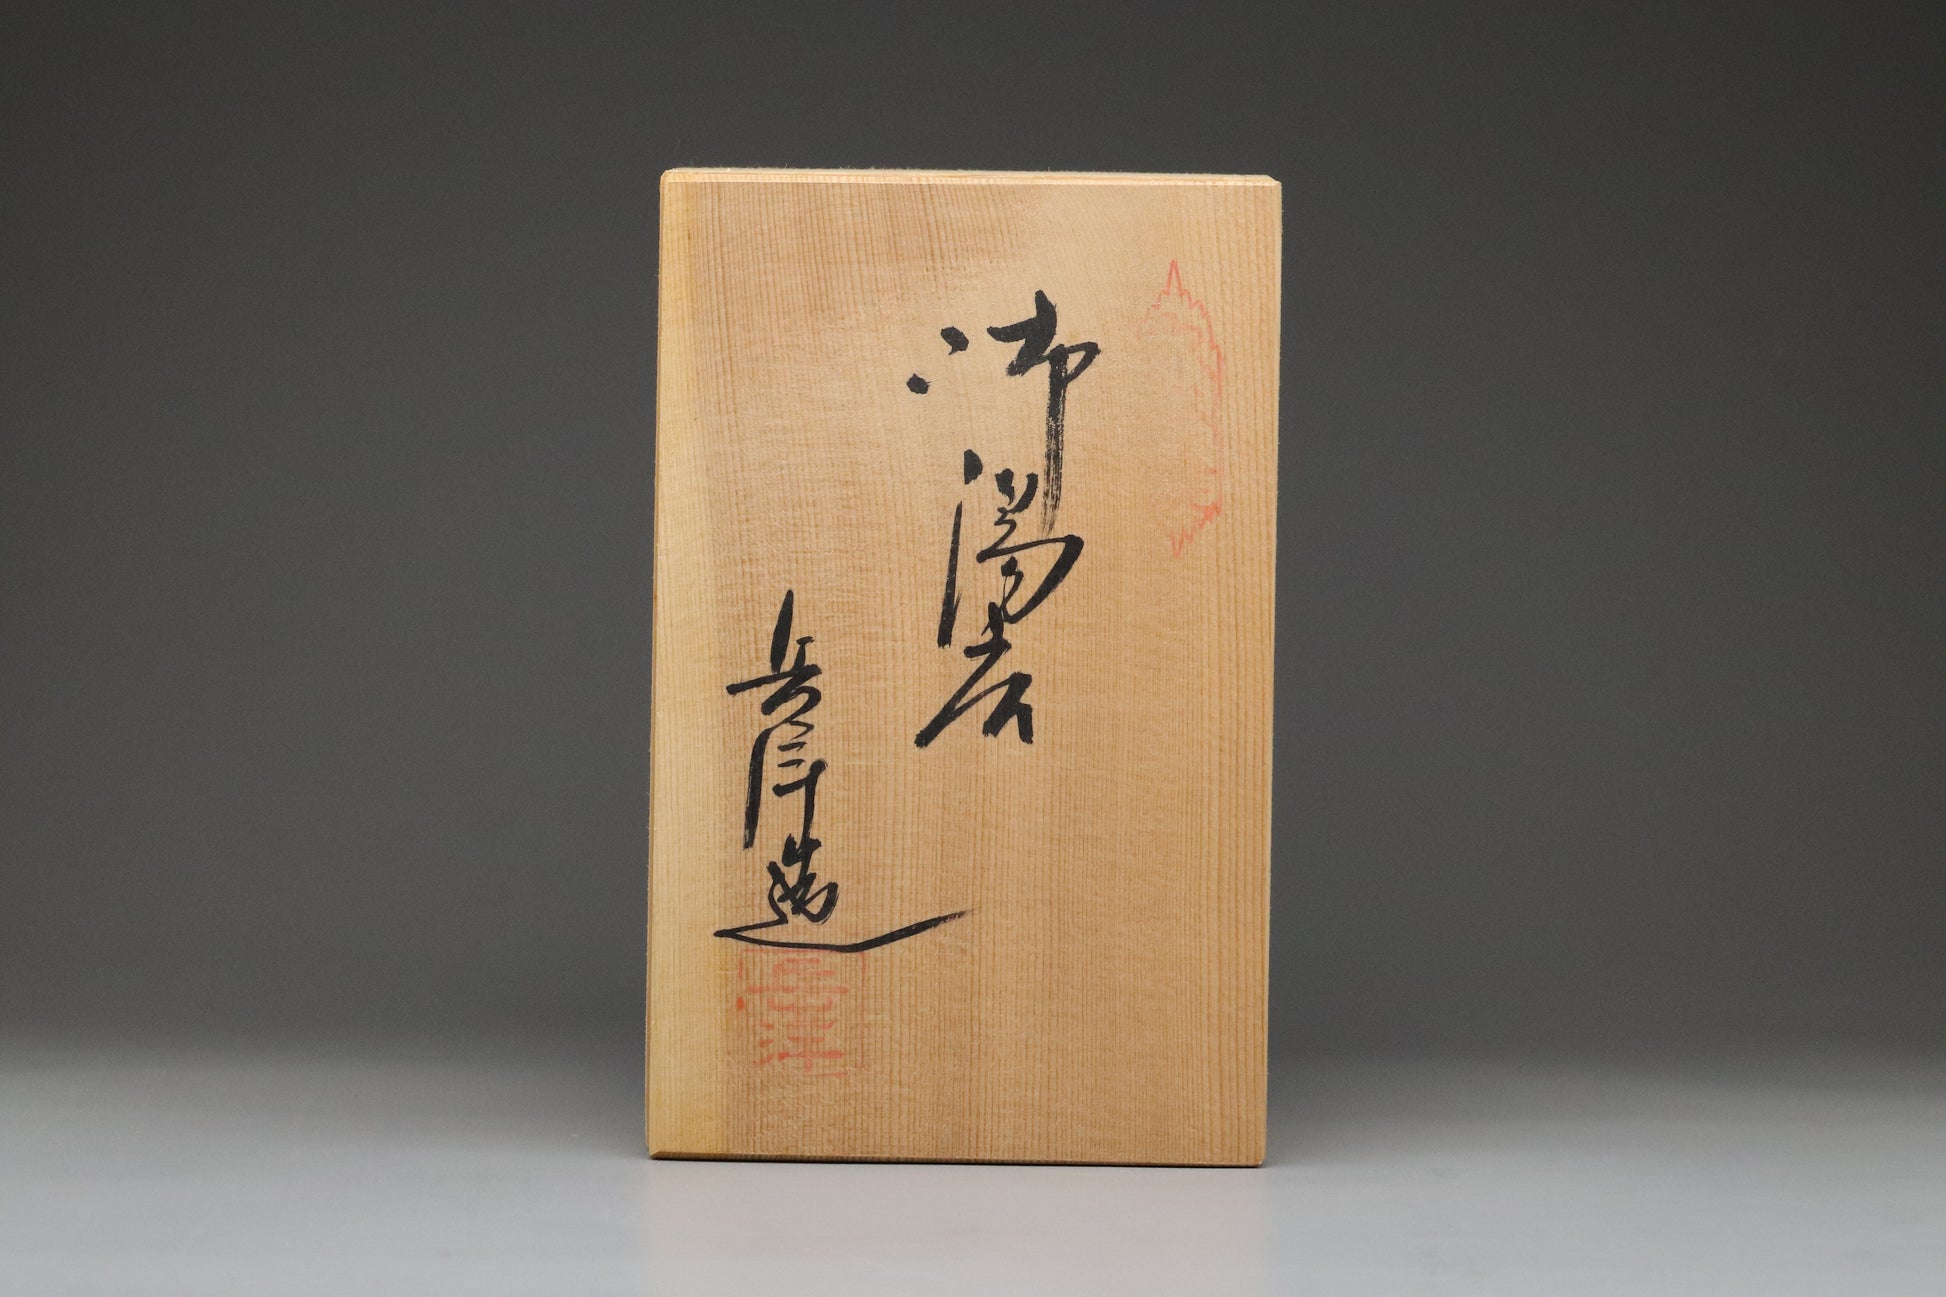 御湯呑
岳洋造
岳洋